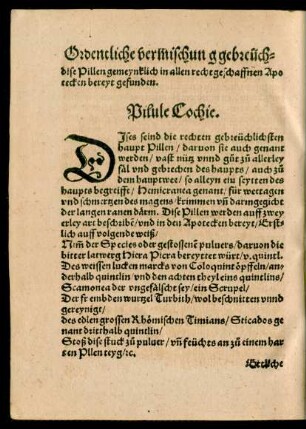 Ordentliche vermischung gebreüch-
diſe Pillen gemeynklich in allen rechtgeſchaffnen Apo
tecken bereyt gefunden.
Pilule Cochie.
DIſes ſeind die rechten gebreüchlichſten
haupt Pillen / darvon ſie auch genant
werden / vaſt nütz vnnd gůt zů allerley
fäl / vnd gebrechen des haupts / auch zů
dem hauptwee / ſo alleyn ein ſeytten des
haupts begreifft / Hemicranea genant, für wetagen
vnd ſchmertzen des magens / krimmen vñ darmgegicht
der langen ranen därm. Diſe Pillen werden auff zwey
erley art beſchribẽ / vnd in den Apotecken bereyt / Erſt-
lich auff volgende weiß /
Nim̃ der Species oder geſtoſſenẽ puluers / daruon die
bitter latwerg Hiera Picra bereyttet würt / v. quintl.
Des weiſſen lucken marcks von Coloquint öpffeln / an-
derhalb quintlin vnd den achten theyl eins quintlins /
Scamonea der vngefälſcht ſey / ein Scrupel /
Der frembden wurtzel Turbith / wol beſchnitten vnnd
gereynigt /
des edlen groſſen Rhömiſchen Timians / Sticados ge
nant dritthalb quintlin /
Stoß diſe ſtuck zů puluer / vñ feüchts an zů einem har
ten Pllen teyg / ꝛc.
Ettliche